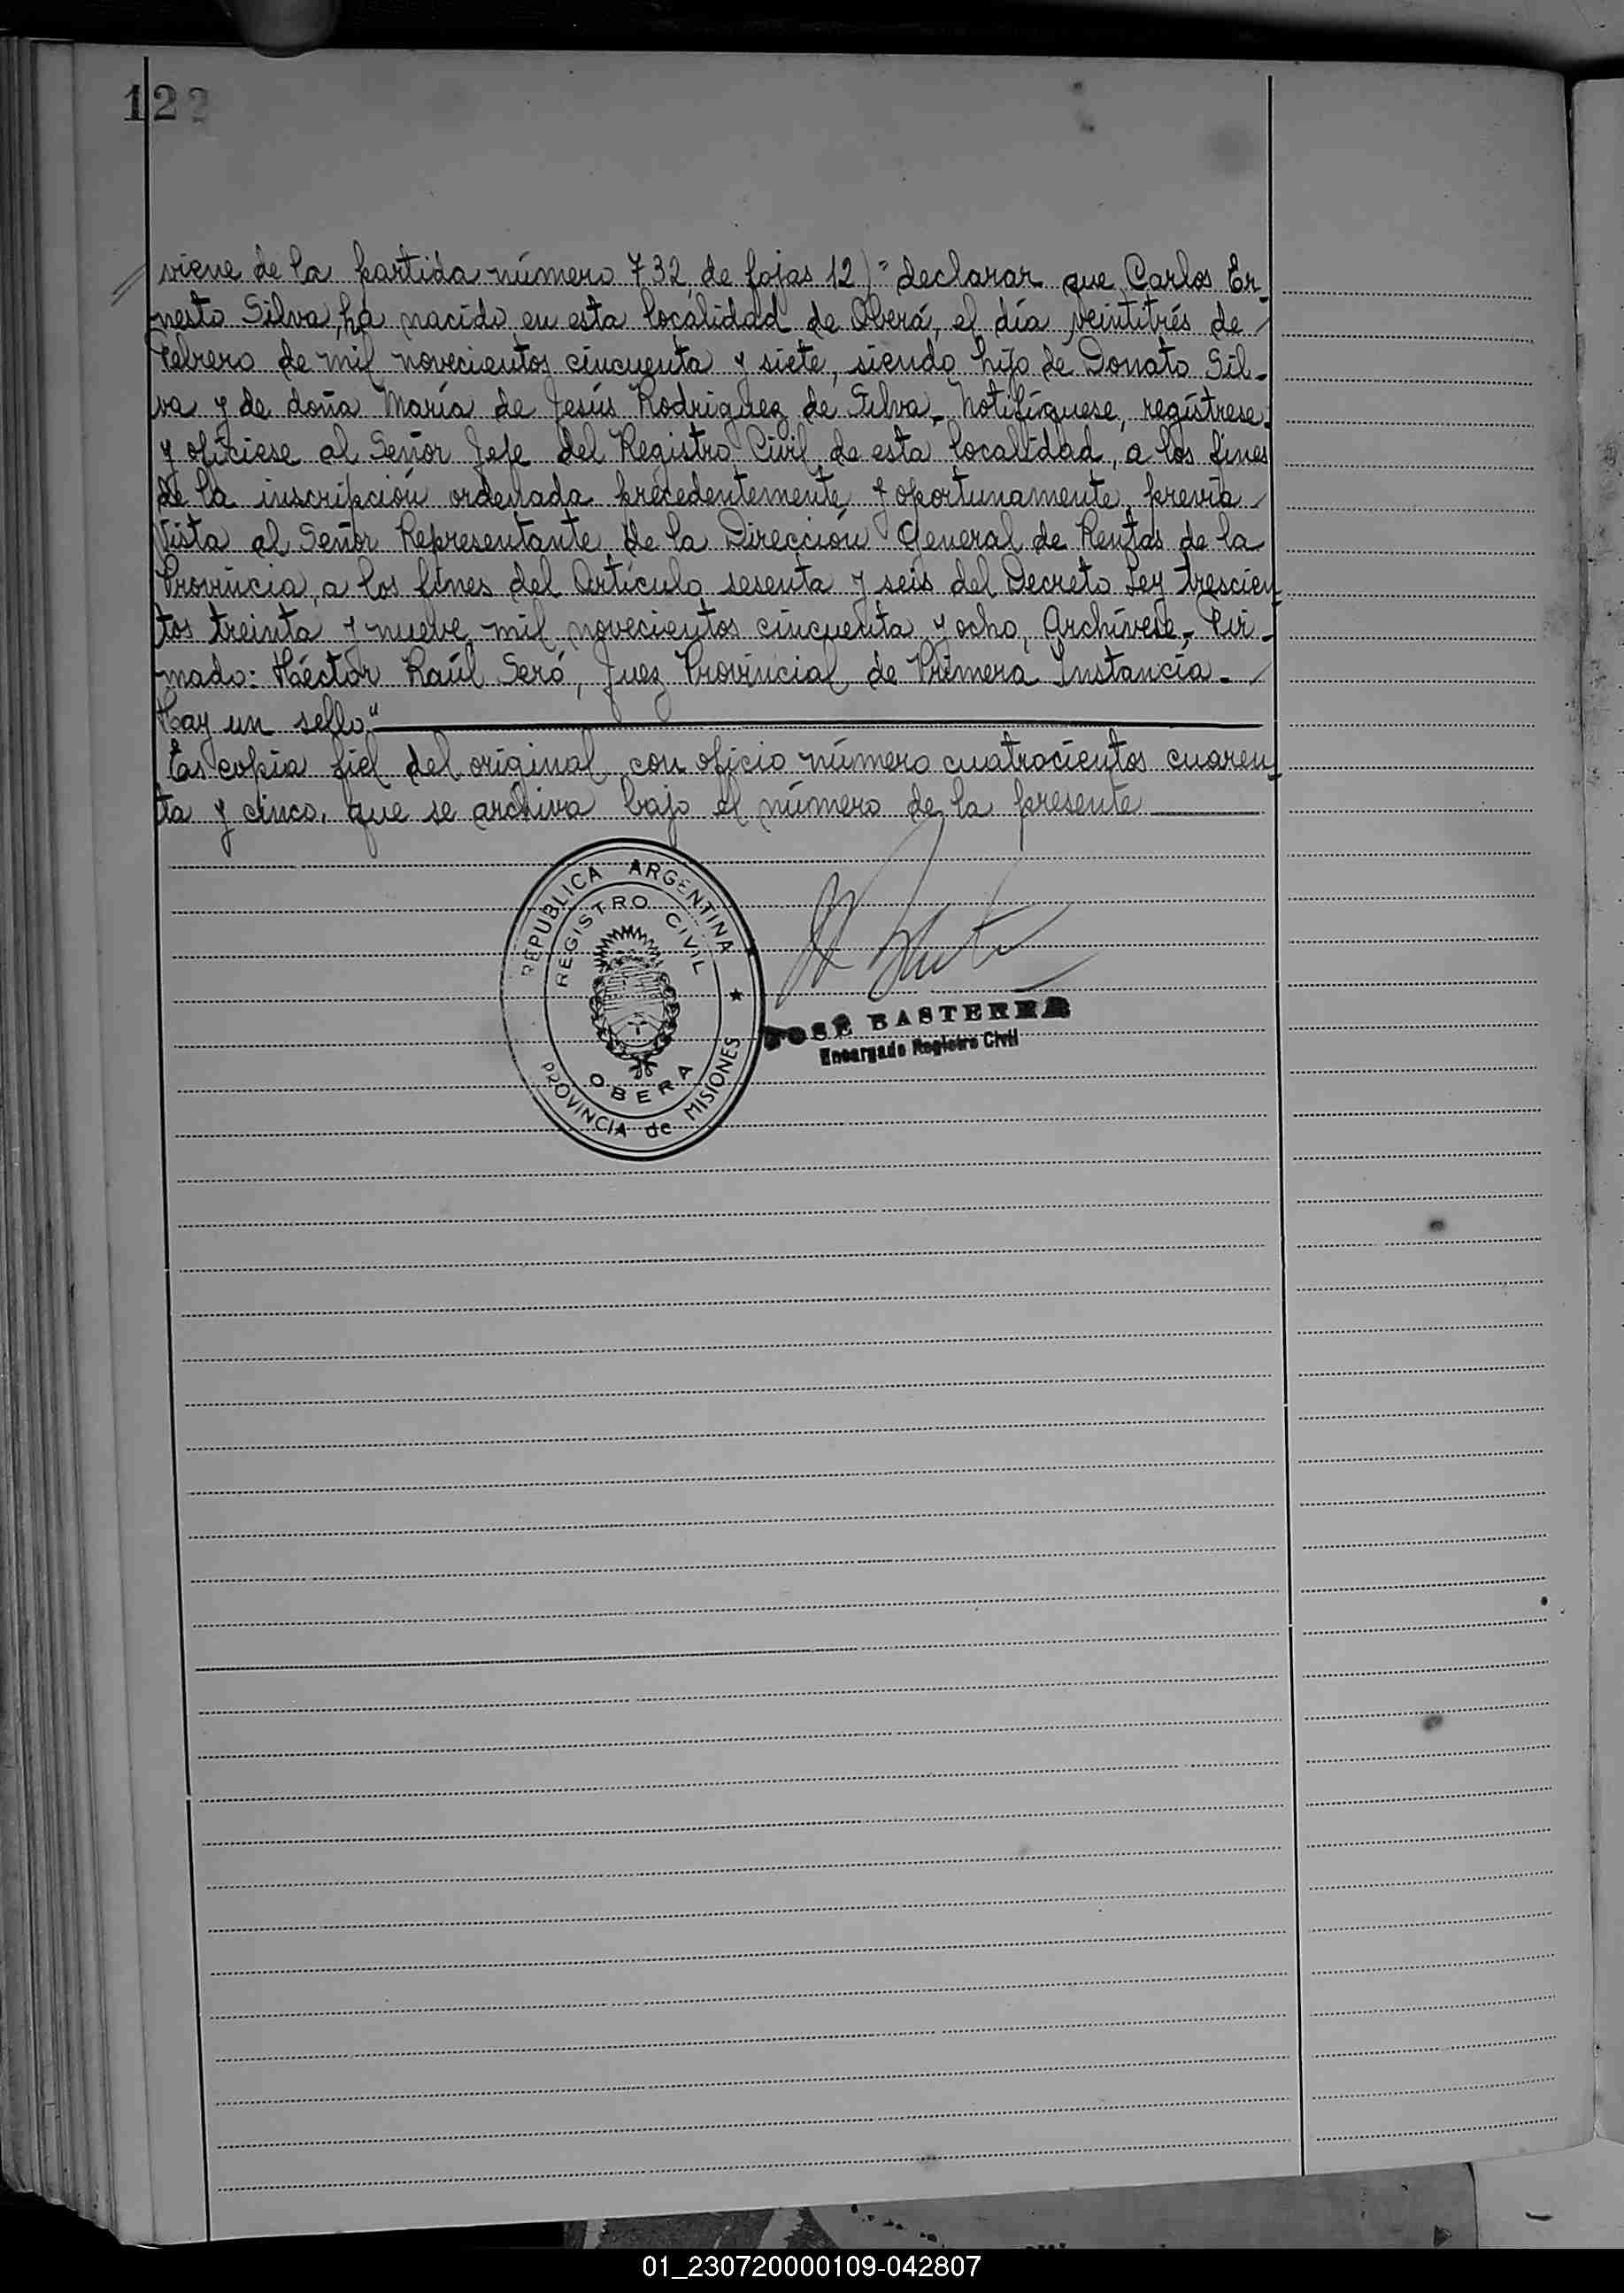 122
viene de la partida número 732, de fojas 12)" declarar que Carlos Er-
nesto Silva, ha nacido en esta localidad de Oberá, el día veintitrés de
Febrero de mil novecientos cincuenta y siete, siendo hijo de Donato Sil-
va y de doña María de Jesús Rodriguez de Silva. Notifíquese, regístrese
y ofíciese al Señor Jefe del Registro Civil de esta localidad, a los fines
de la inscripción ordenada precedentemente y oportunamente, previa
Vista al Señor Representante de la Dirección General de Rentas de la
Provincia, a los fines del Artículo sesenta y seis del Decreto Ley trescien
tos treinta y nueve, mil novecientos cincuenta y ocho, Archívese. Fir-
mado: Héctor Raúl Seró, Juez Provincial de Primera Instancia.
Hay un sello"
Es copia fiel del original, con oficio número cuatrocientos cuaren-
ta y cinco, que se archiva bajo el número de la presente
REPUBLICA ARGENTINA
REGISTRO CIVIL
OBERA
PROVINCIA de MISIONES
JOSÉ BASTERRA
Encargado Registro Civil
01_230720000109-042807